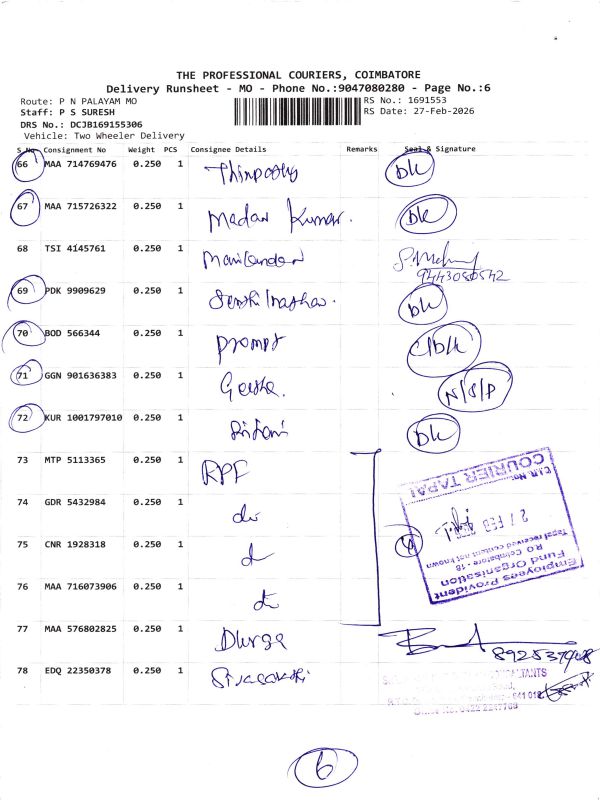 THE PROFESSIONAL COURIERS, COIMBATORE
Delivery Runsheet - MO - Phone No.:9047080280 - Page No.:6
Route: P N PALAYAM MO
RS No.: 1691553
Staff: P S SURESH
RS Date: 27-Feb-2026
DRS No.: DCJB169155306
Vehicle: Two Wheeler Delivery
S.No Consignment No Weight PCS Consignee Details Remarks Seal & Signature
66 MAA 714769476 0.250 1 DK
67 MAA 715726322 0.250 1 Madan Kumar. DK
68 TSI 4145761 0.250 1 Manikandan
9443080542
69 PDK 9909629 0.250 1 DK
70 BOD 566344 0.250 1 Prompt
71 GGN 901636383 0.250 1 Geetha. N/S/P
72 KUR 1001797010 0.250 1 DK
73 MTP 5113365 0.250 1 RPF
74 GDR 5432984 0.250 1 do
75 CNR 1928318 0.250 1 4
76 MAA 716073906 0.250 1 do
77 MAA 576802825 0.250 1 Durga
78 EDQ 22350378 0.250 1 Sivasakthi
Employees Provident
Fund Organisation
RO Coimbatore - 18
Tapal received content not known
27 FEB
COURIER TAPAL
6